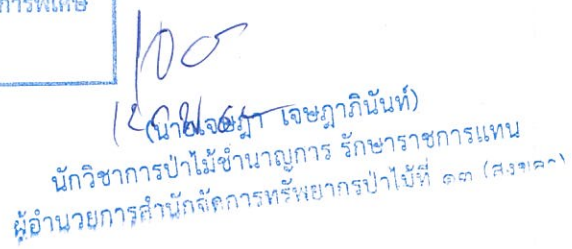 การพิเศษ
(นายเจษฎา เจษฎาภินันท์)
นักวิชาการป่าไม้ชำนาญการ รักษาราชการแทน
ผู้อำนวยการสำนักจัดการทรัพยากรป่าไม้ที่ ๑๓ (สงขลา)